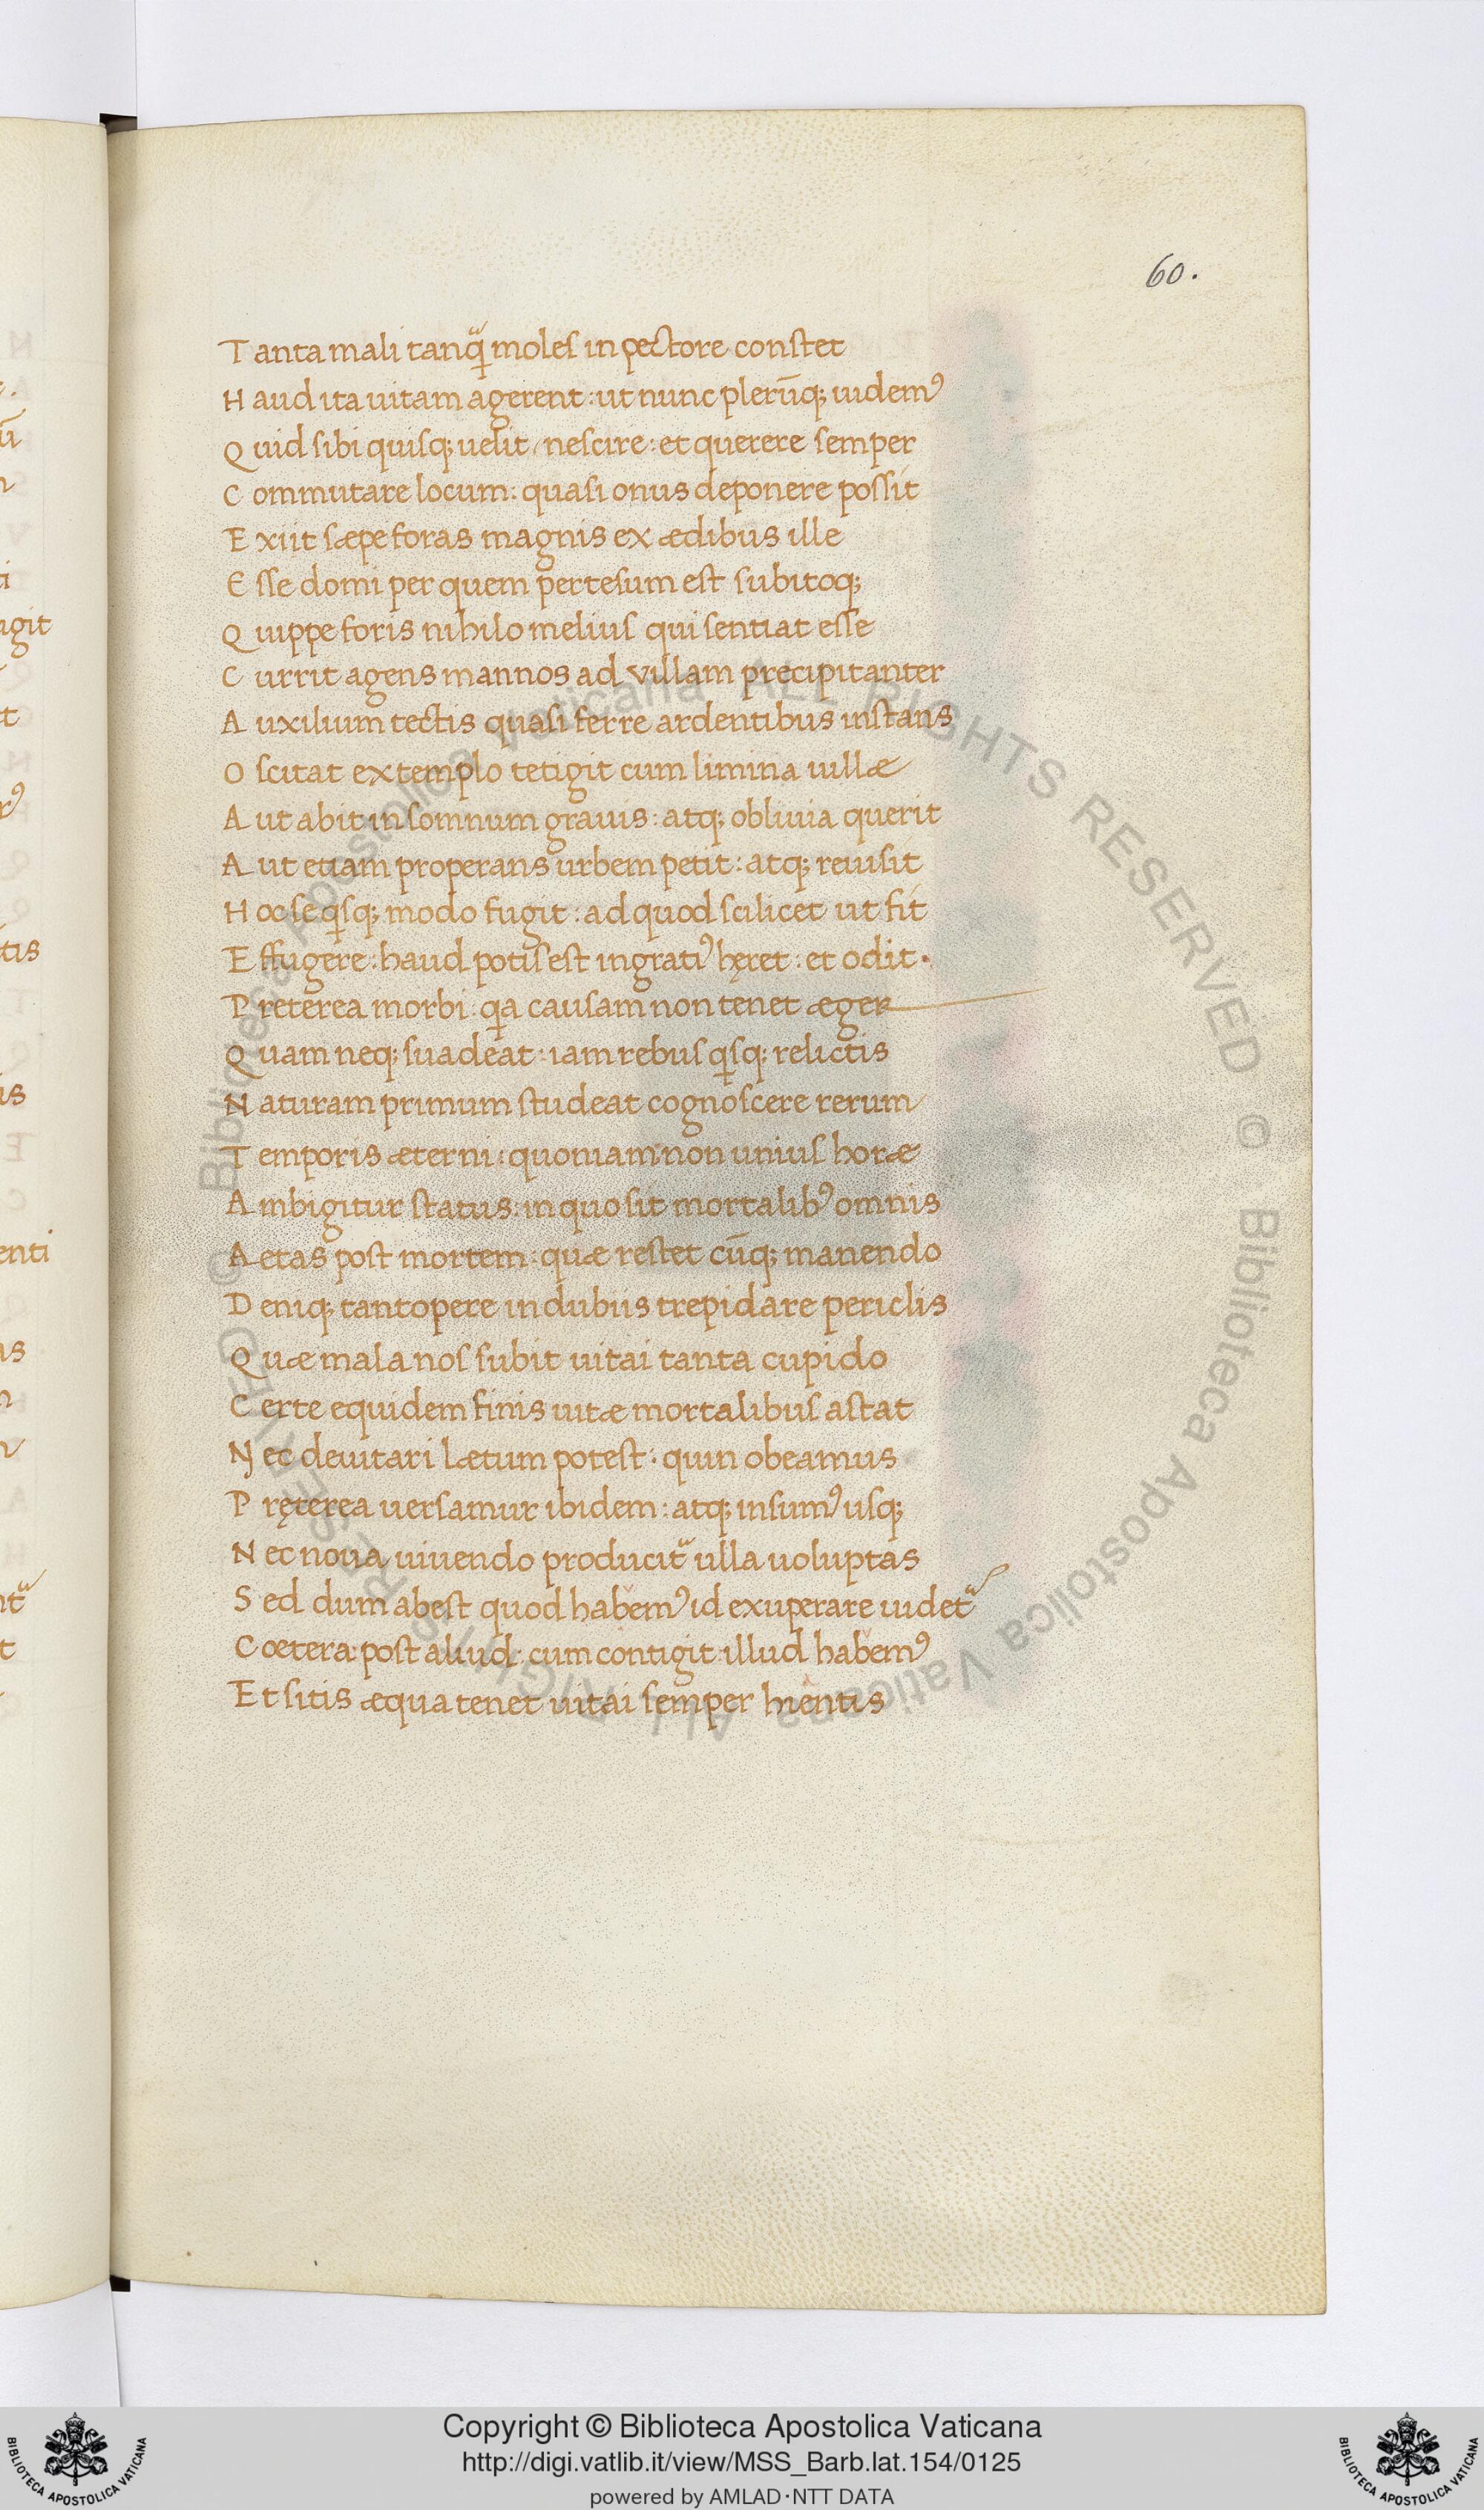 60.
Tanta mali tanqᷓ moleſ in pectore conſtet
Haud ita uitam agerent: ut nunc pler̄uq; uidemꝰ
Quid ſibi quiſq; uelit / neſcire: et querere ſemper
Commutare locum: quaſi onus deponere poſſit
Exiit ſæpe foras magnis ex ædibus ille
Eſſe domi per quem perteſum eſt ſubitoq;
Quippe foris nihilo meliuſ qui ſentiat eſſe
Currit agens mannos ad villam precipitanter
Auxilium tectis quaſi ferre ardentibus inſtans
Oſcitat extemplo tetigit cum limina uillæ
Aut abit in ſomnum grauis: atq; obliuia querit
Aut etiam properans urbem petit: atq; reuiſit
Hoc ſe qiſq; modo fugit: ad quod ſcilicet ut fit
Effugere: haud potiſ eſt ingratiꝰ hęret: et odit.
Preterea morbi: qia cauſam non tenet æger
Quam neq; ſuadeat: iam rebuſ qiſq; relictis
Naturam primum ſtudeat cognoſcere rerum
Temporis æterni: quoniam non uniuſ horæ
Ambigitur ſtatus: in quo ſit mortalibꝰ omnis
Aetas poſt mortem: quæ reſtet cūq; manendo
Deniq; tantopere in dubiis trepidare periclis
Quæ mala noſ ſubit uitai tanta cupido
Certe equidem finis uitæ mortalibuſ aſtat
Nec deuitari lætum poteſt: quin obeamus
Pręterea uerſamur ibidem: atq; inſumꝰ uſq;
Nec noua uiuendo producitᷓ ulla uoluptas
Sed dum abeſt quod habemꝰ id exuperare uidetᷓ
Cœtera: poſt aliud: cum contigit: illud habemꝰ
Et ſitis æqua tenet uitai ſemper hientis
Copyright © Biblioteca Apostolica Vaticana
http://digi.vatlib.it/view/MSS_Barb.lat.154/0125
powered by AMLAD·NTT DATA